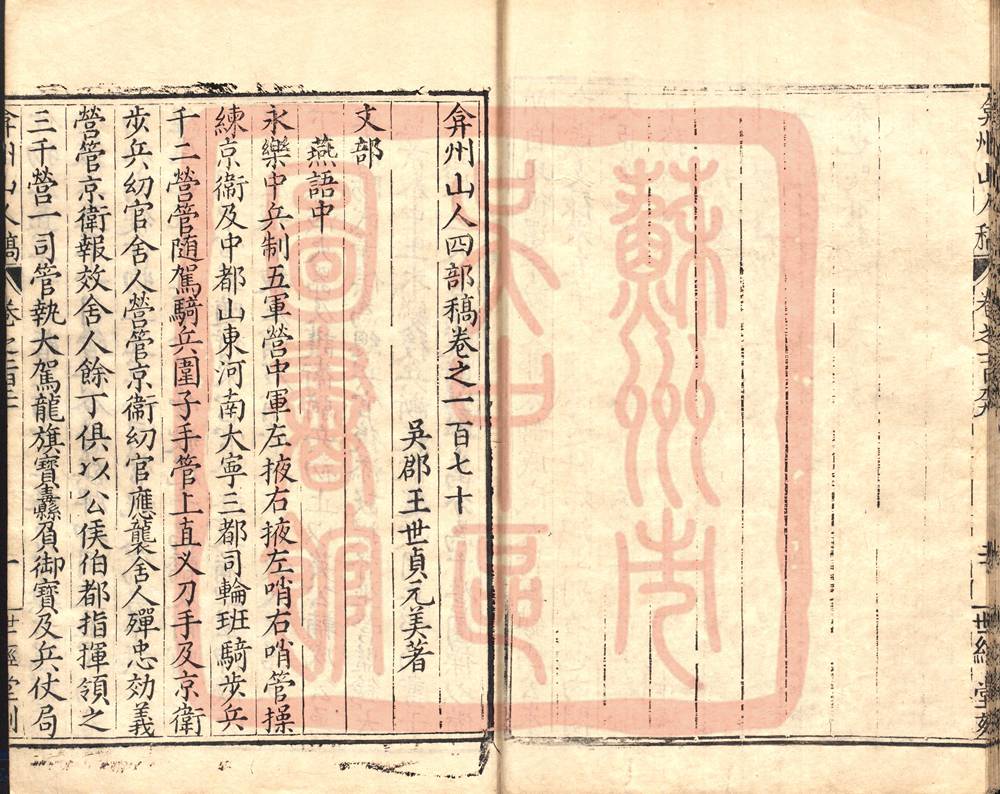 弇州山人四部稿卷之一百七十
吳郡王世貞元美著
文部
燕語中
永樂中兵制五軍營中軍左掖右掖左哨右哨管操
練京衛及中都山東河南大寧三都司輪班騎步兵
千二營管随駕騎兵圍子手管上直义刀手及京衛
步兵㓜官舍人營管京衛㓜官應襲舍人殫忠効義
營管京衛報效舍人餘丁俱以公侯伯都指揮領之
三千營一司管執大駕龍旗寶纛負御寶及兵仗局
弇州山人稿
世經堂刻
蘇州市
文中區
圖書館